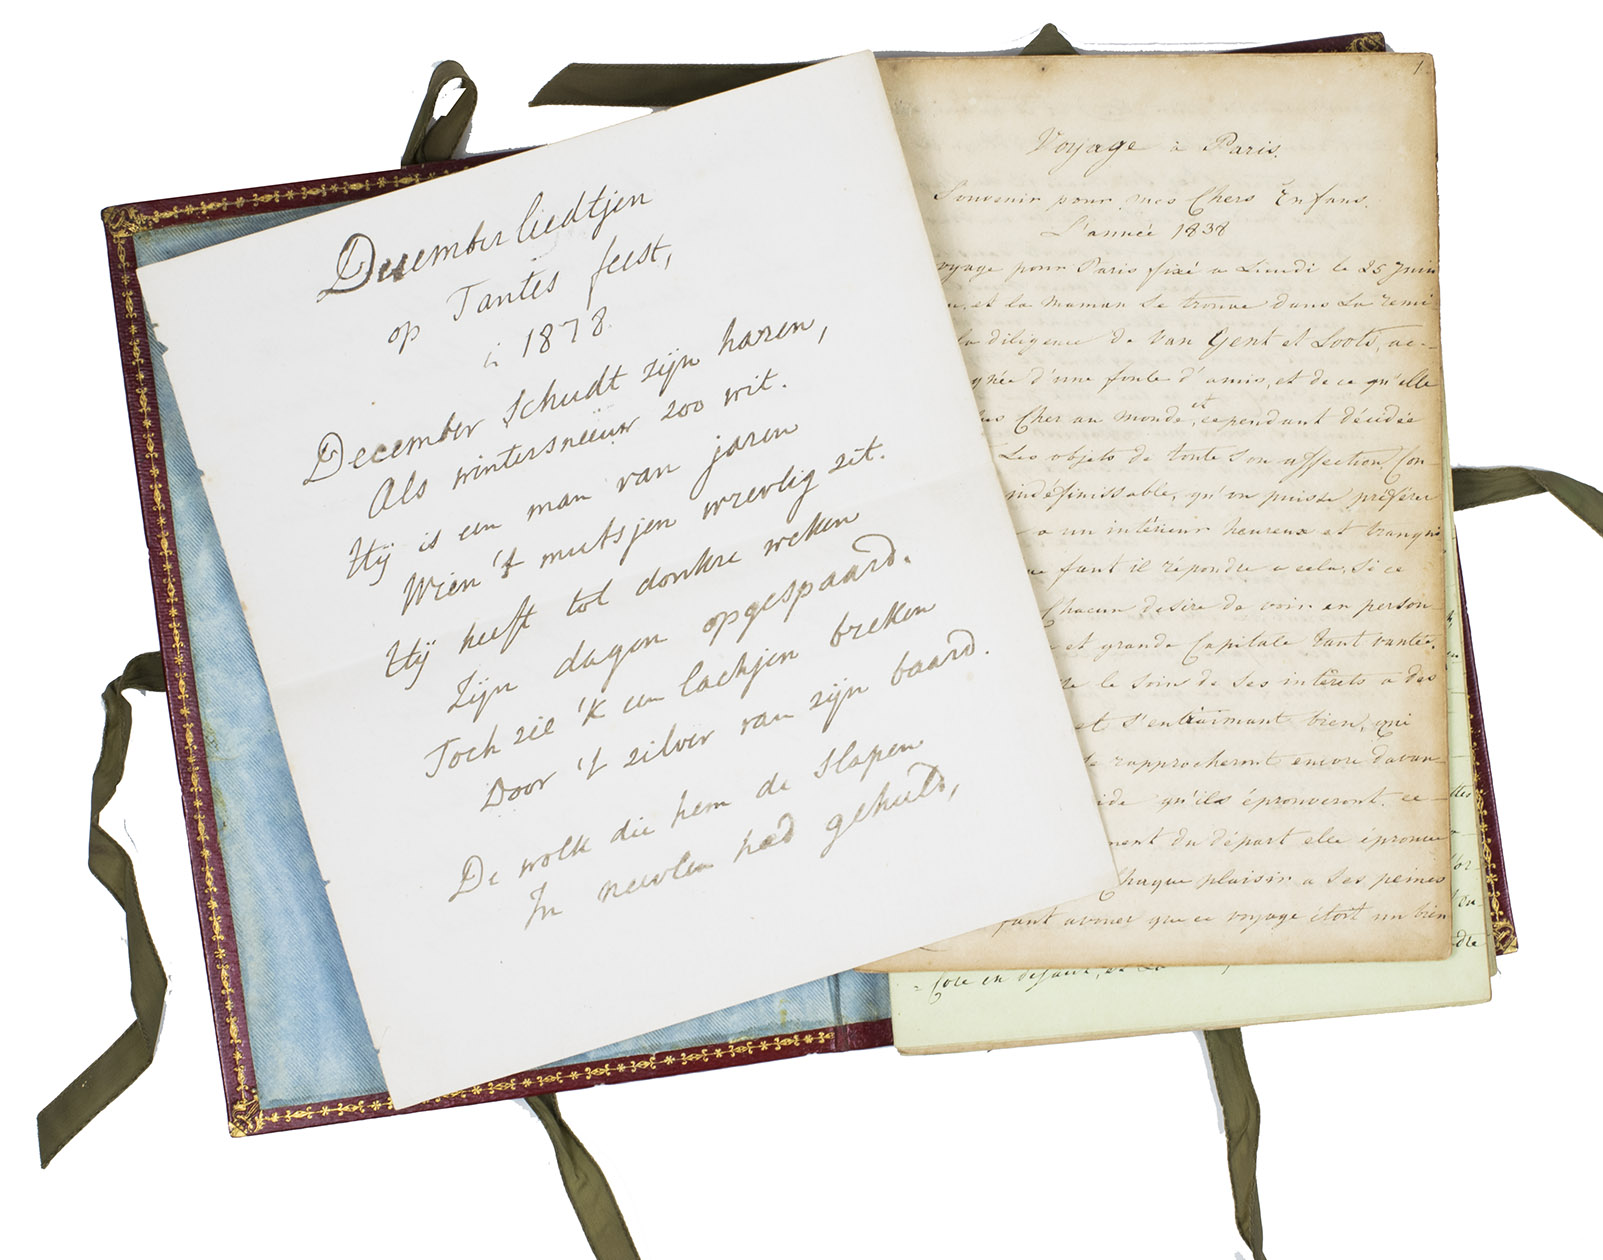 Decemberliedtjen
op Tantes feest,
in 1878.
December schudt zijn haren,
Als wintersneeuw zoo wit.
Hij is een man van jaren
Wien 't mutsjen wrevlig zit.
Hij heeft tot donkre weken
Zijn dagen opgespaard.
Toch zie 'k een lachjen breken
Door 't zilver van zijn baard.
De wolk die hem de slapen
In nevelen had gehuld,
1
Voyage à Paris.
Souvenir pour mes Chers Enfans.
L'année 1838
voyage pour Paris fixé a Lundi le 25 Juin
et la maman se trouve dans la remi-
la diligence de Van Gent et Loots, ac-
gnée d'une foule d'amis, et de ce qu'elle
us Cher au monde, et cependant décidée
Les objets de toute son affection. Con-
indéfinissable, qu'on puisse préférer
a un intérieur heureux et tranqui
ue faut il répondre a cela, si ce
Chacun desire de voir en person-
et grande Capitale tant vantée.
te le soin de ses intérêts a des
et s'entraimant bien, qui
le rapprocheront encore davan-
ide qu'ils éprouveront ce-
ment du départ elle éprouve
Chaque plaisir a ses peines
faut avouer que ce voyage étoit un bien